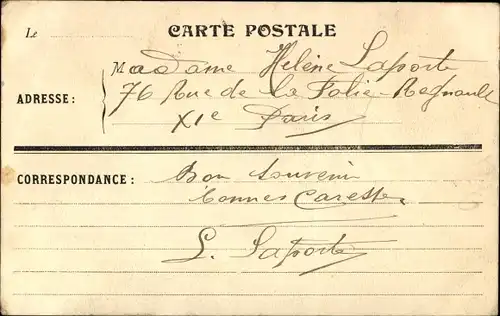 Le
CARTE POSTALE
Madame Helène Laporte
ADRESSE : 76 Rue de la Folie-Regnault
XIe Paris
CORRESPONDANCE : Bon Souvenir
bonnes Caresses
L. Laporte